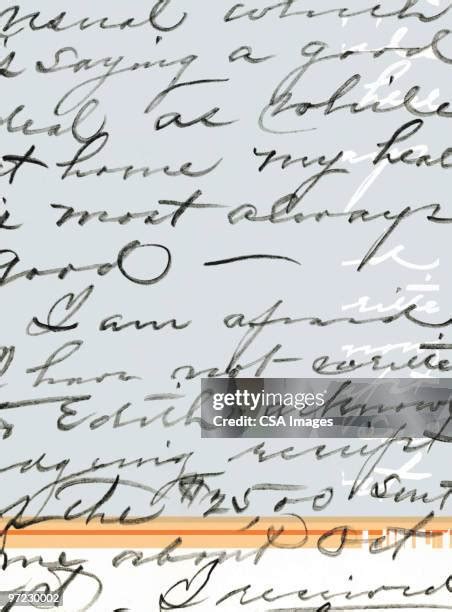 usual which
is saying a good
deal as while
at home my heal
is most always
good —
I am afraid
I have not written
to Edith acknow
edging receipt
of the $25.00 sent
me about Oct
I received
gettyimages
Credit:
CSA Images
97230002